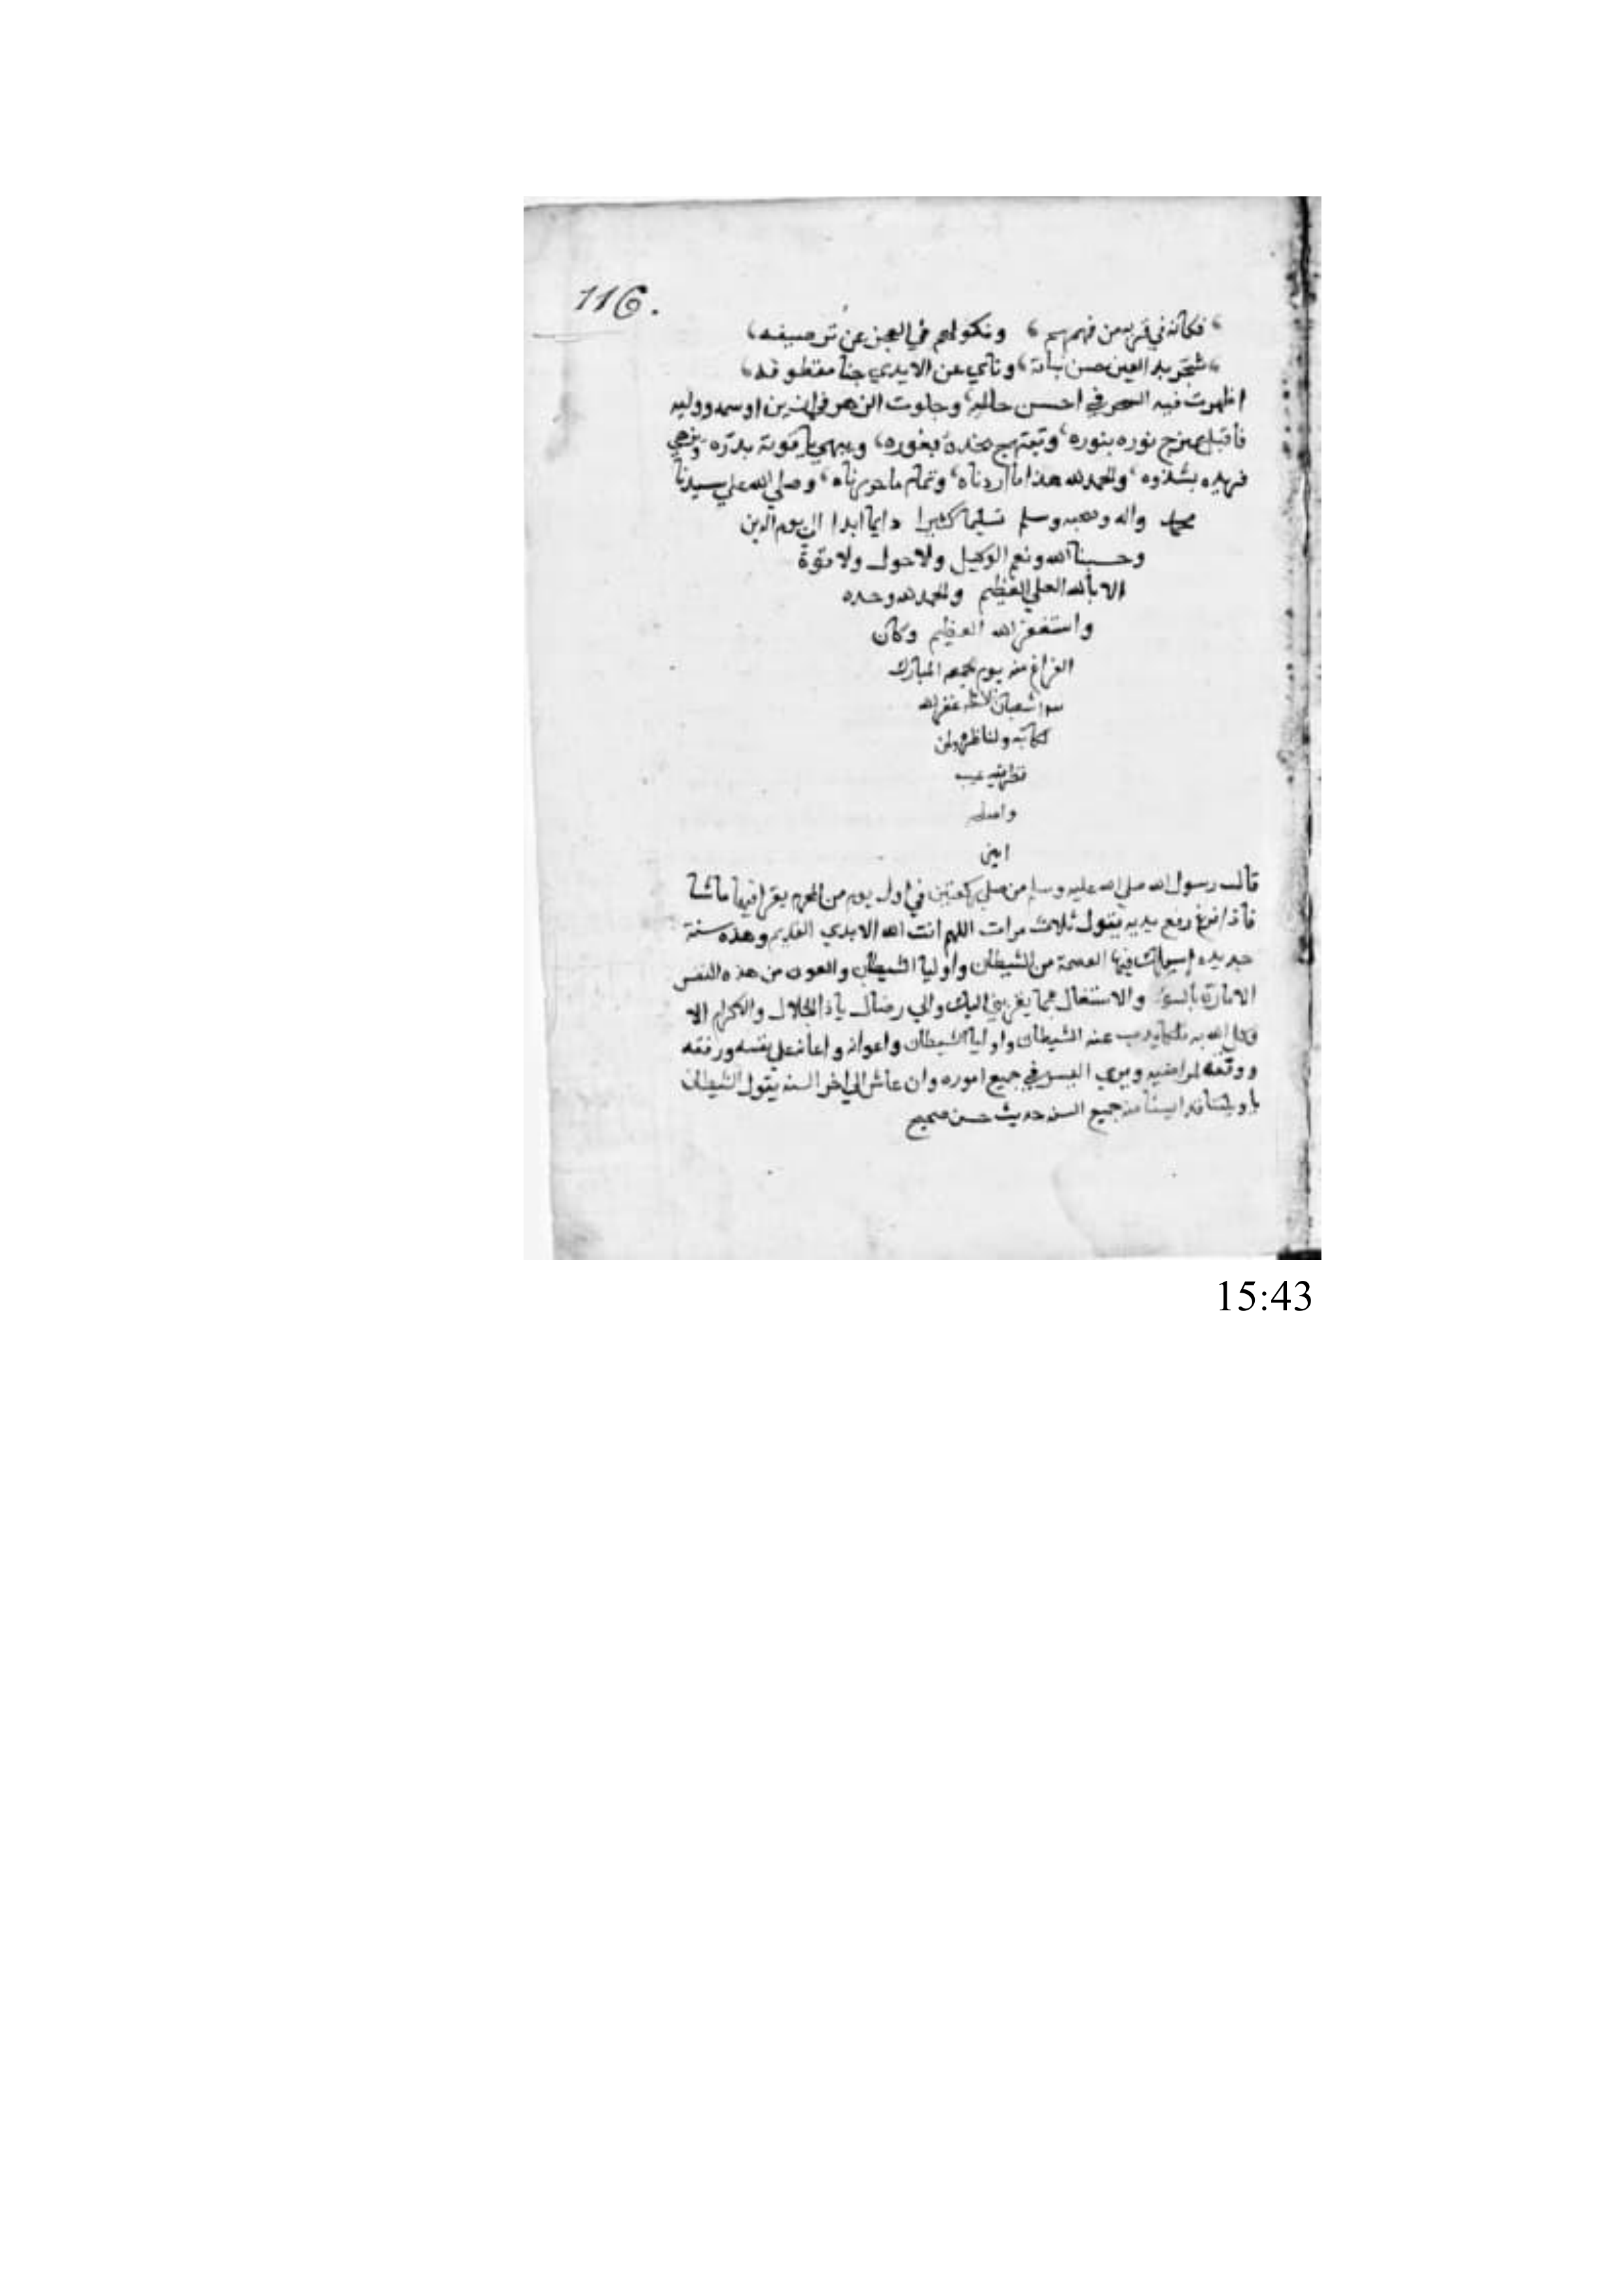 116.
فكانه في قربه من فهمهم ونكولهم في العجز عن ترصيفه
شجر بدا للعين حسن نباته وناي عن الايدي جنا مقطوفه
اظهرت فيه السحر في احسن حاليه وجلوت الزهر في ازين اوسمه ووليه
فاقبل يمزج نوره بنوره ويبتهج نجده بغوره ويبهي ياقوته بدره ويزهي
فريده بشذوه والحمد لله هذا ما اردناه وتمام ما حررناه وصلي الله علي سيدنا
محمد واله وصحبه وسلم تسليما كثيرا دايما ابدا الي يوم الدين
وحسبنا الله ونعم الوكيل ولا حول ولا قوة
الا بالله العلي العظيم والحمد لله وحده
واستغفر الله العظيم وكان
الفراغ منه يوم الجمعه المبارك
شعبان غفر الله
لكاتبه ولناظره ولمن
عيب
واصلحه
امين
قال رسول الله صلي الله عليه وسلم من صلي ركعتين في اول يوم من المحرم يقرا فيها ما شا
فاذا فرغ رفع يديه يقول ثلاث مرات اللهم انت الله الابدي القديم وهذه سنة
جديده اسيلك فيها العصمة من الشيطان واوليا الشيطان والعون من هذه النفس
الامارة بالسوء والاستغال بما يقربني اليك والي رضاك ياذا الجلال والاكرام الا
وكل الله به ملكا يدب عنه الشيطان واوليا الشيطان واعوانه واعانه علي نفسه ورفقه
ووفقه لمراضيه ويري اليسر في جميع اموره وان عاش الي اخر السنه يقول الشيطان
يا ويلتنا قد ايسنا من جميع السنه حديث حسن صحيح
15:43